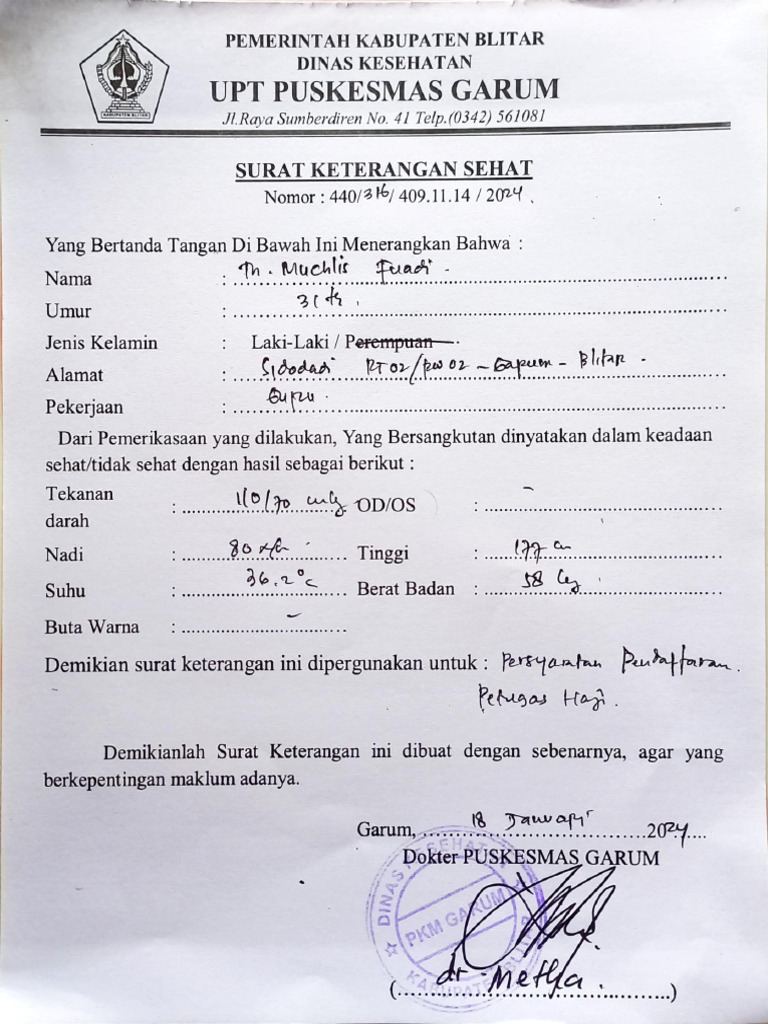 PEMERINTAH KABUPATEN BLITAR
DINAS KESEHATAN
UPT PUSKESMAS GARUM
Jl.Raya Sumberdiren No. 41 Telp.(0342) 561081
KABUPATEN BLITAR
SURAT KETERANGAN SEHAT
Nomor : 440/316/ 409.11.14 / 2024.
Yang Bertanda Tangan Di Bawah Ini Menerangkan Bahwa :
Nama : Muchlis Fuadi.
Umur : 31 th.
Jenis Kelamin : Laki-Laki / Perempuan
Alamat : Sidodadi RT02/RW02 - Garum - Blitar.
Pekerjaan : Guru.
Dari Pemerikasaan yang dilakukan, Yang Bersangkutan dinyatakan dalam keadaan
sehat/tidak sehat dengan hasil sebagai berikut :
Tekanan darah : 110/70 OD/OS : -
Nadi : 80 Tinggi : 177 cm
Suhu : 36,2°c Berat Badan : 58 kg
Buta Warna : -
Demikian surat keterangan ini dipergunakan untuk : Persyaratan Pendaftaran
Petugas Haji.
Demikianlah Surat Keterangan ini dibuat dengan sebenarnya, agar yang
berkepentingan maklum adanya.
Garum, 18 Januari 2024
Dokter PUSKESMAS GARUM
DINAS KESEHATAN
PKM GARUM
KABUPATEN BLITAR
(dr. Metha.)